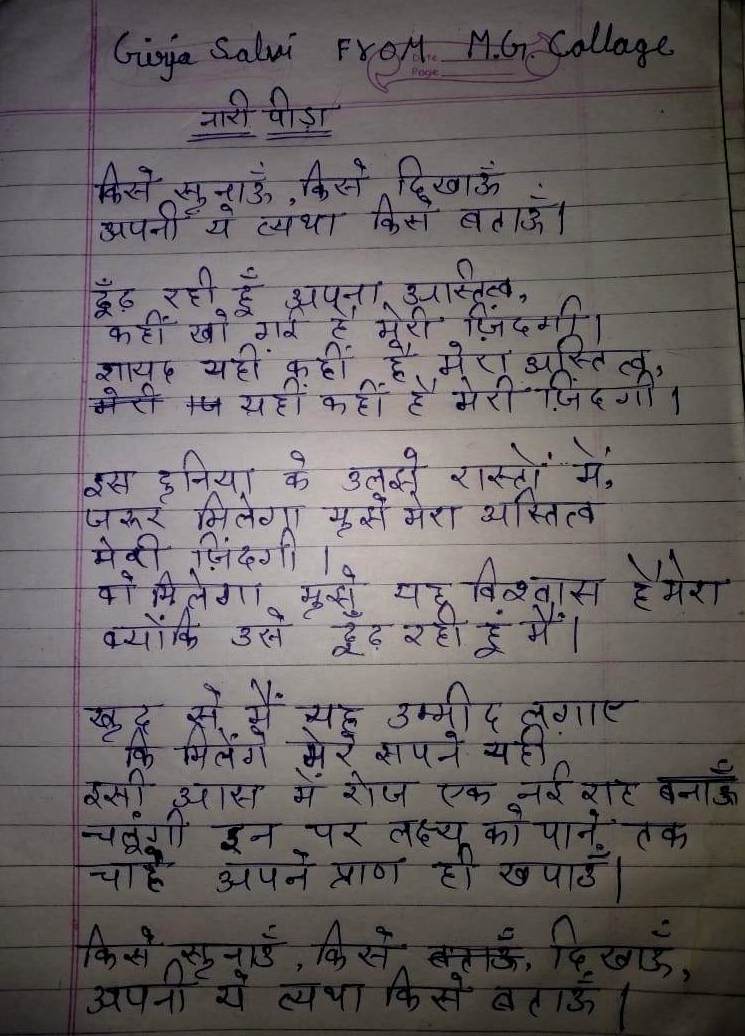 Girja Salvi From M.G. Collage
Date
Page
नारी पीड़ा
किसे सुनाऊँ, किसे दिखाऊँ
अपनी ये व्यथा किसे बताऊँ।
ढूँढ़ रही हूँ अपना अस्तित्व,
कहीं खो गई है मेरी ज़िंदगी।
शायद यहीं कहीं है मेरा अस्तित्व,
यहीं कहीं है मेरी ज़िंदगी।
इस दुनिया के उलझे रास्तों में,
जरूर मिलेगा मुझे मेरा अस्तित्व
मेरी ज़िंदगी।
वो मिलेगा मुझे यह विश्वास है मेरा
क्योंकि उसे ढूँढ़ रही हूं मैं।
खुद से मैं यह उम्मीद लगाए
कि मिलेंगे मेरे सपने यहीं
इसी आस में रोज एक नई राह बनाऊँ
चलूंगी इन पर लक्ष्य को पाने तक
चाहे अपने प्राण ही खपाऊँ।
किसे सुनाऊँ, किसे दिखाऊँ,
अपनी ये व्यथा किसे बताऊँ।